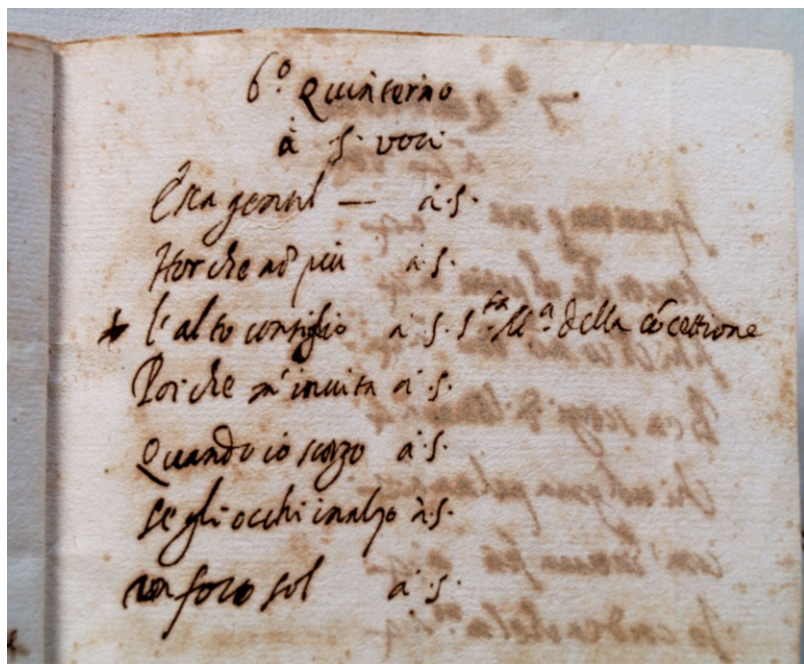 6.º Quinterno
à 5. voci
Esca gentil — à.5.
Hor che nõ più à.5.
l'alto consiglio à 5. S.ta M.a della cõcettione
Poi che m'invita à 5.
Quando io scorgo à.5.
se gli occhi inalzo à.5.
un foco sol à 5.